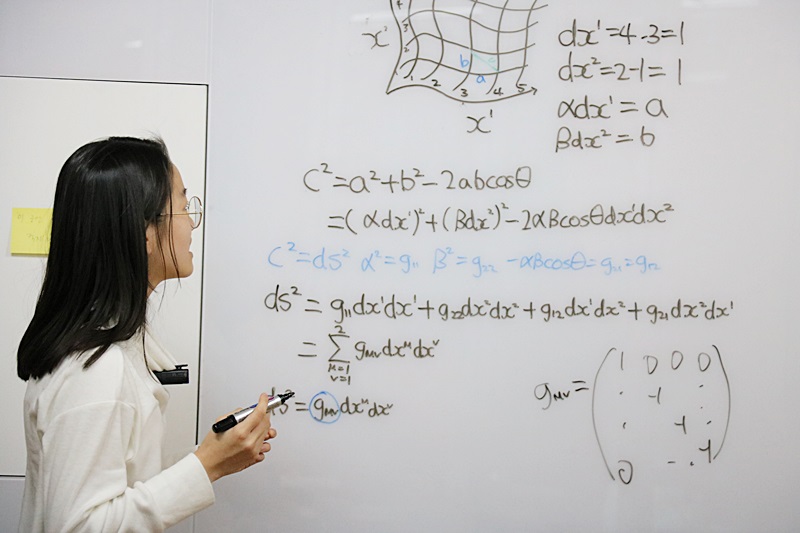 4
3
2
1 2 3 4 5
b
a
x'
x'
dx' = 4-3 = 1
dx² = 2-1 = 1
αdx' = a
βdx² = b
C² = a² + b² - 2abcosθ
= (αdx')² + (βdx²)² - 2αβcosθdx'dx²
C² = ds² α² = g₁₁ β² = g₂₂ -αβcosθ = g₁₁ = g₁₂
ds² = g₁₁dx'dx' + g₂₂dx²dx² + g₁₂dx'dx² + g₂₁dx²dx'
= Σ²_{μ=1 ν=1} g_{μν}dx^μdx^ν
ds² = g_{μν}dx^μdx^ν
g_{μν} = ( 1 0 0 0
. -1 :
. -1 .
0 - . -1 )